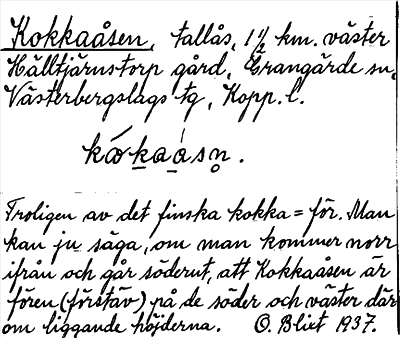 Kokkaåsen, tallås, 1 1/2 km. väster
Hälltjärnstorp gård, Grangärde sn,
Västerbergslags tg, Kopp. l.
kǿkaásn̥.
Troligen av det finska kokka = för. Man
kan ju säga, om man kommer norr
ifrån och går söderut, att Kokkaåsen är
fören (förstäv) på de söder och väster där
om liggande höjderna. O. Blixt 1937.